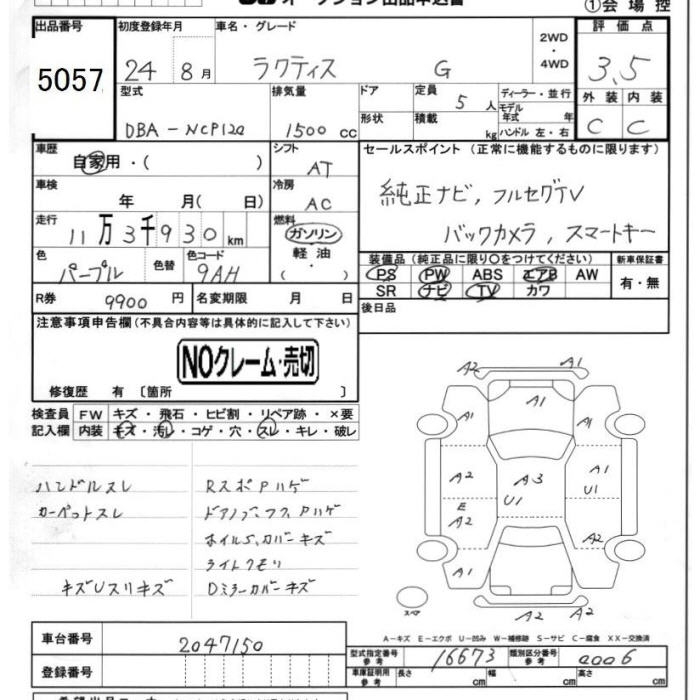 オークション出品申込書
①会場控
出品番号 初度登録年月 車名・グレード 2WD・4WD 評価点
5057 24 8月 ラクティス G 3.5
型式 排気量 ドア 定員 5人 ディーラー・並行 外装 内装
モデル年式 年
DBA-NCP120 1500cc 形状 積載 kg ハンドル 左・右 C C
車歴 自家用・( ) シフト AT セールスポイント(正常に機能するものに限ります)
車検 年 月(日) 冷房 AC 純正ナビ,フルセグTV
走行 11万3千930km 燃料 ガソリン バックカメラ,スマートキー
軽油・( )
色 パープル 色替 色コード 9AH 装備品(純正品に限り○をつけてください) 新車保証書
PS PW ABS エアB AW 有・無
R券 9900円 名変期限 月 日 SR ナビ TV カワ
後日品
注意事項申告欄(不具合内容等は具体的に記入して下さい)
NOクレーム・売切
修復歴 有〔箇所 〕
検査員 FW キズ・飛石・ヒビ割・リペア跡・×要
記入欄 内装 キズ・汚レ・コゲ・穴・スレ・キレ・破レ
ハンドルスレ RスポPハゲ
カーペットスレ ドアノブ,フタ,Pハゲ
ホイル5,カバーキズ
ライトクモリ
キズUスリキズ Dミラーカバーキズ
A2 A1
A1 A1 A1
A2 A3 A1
U1 U1
E
A2 A2
A1 A1
スペア A2 A2
A-キズ E-エクボ U-凹み W-補修跡 S-サビ C-腐食 XX-交換済
車台番号 2047150
型式指定番号 参考 16673 類別区分番号 参考 0006
登録番号 車庫証明用 参考 長さ cm 幅 cm 高さ cm